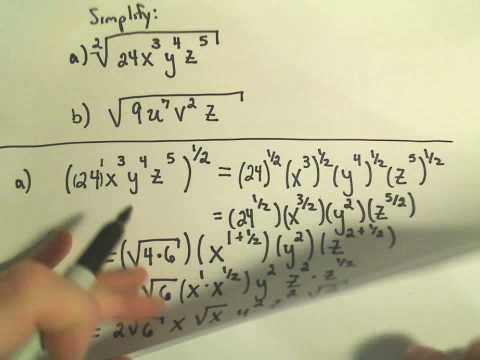 Simplify:
a) ²√24x³y⁴z⁵
b) √9u⁷v²z
a) ((24)¹x³y⁴z⁵)^1/2 = (24)^1/2 (x³)^1/2 (y⁴)^1/2 (z⁵)^1/2
= (24^1/2)(x^3/2)(y²)(z^5/2)
= (√4·6)(x^1+1/2)(y²)(z^2+1/2)
√6 (x¹·x^1/2) y² z²·z^1/2
= 2√6 x √x y² z²